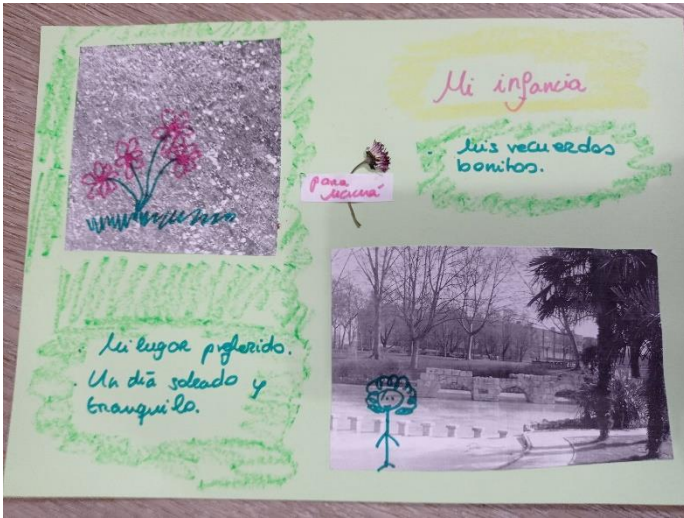 Mi infancia
Mis recuerdos
bonitos.
para
Mamá
Mi lugar preferido.
Un día soleado y
tranquilo.